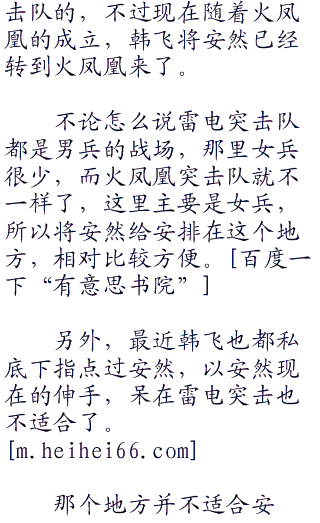 击队的，不过现在随着火凤
凰的成立，韩飞将安然已经
转到火凤凰来了。
不论怎么说雷电突击队
都是男兵的战场，那里女兵
很少，而火凤凰突击队就不
一样了，这里主要是女兵，
所以将安然给安排在这个地
方，相对比较方便。[百度一
下“有意思书院”]
另外，最近韩飞也都私
底下指点过安然，以安然现
在的伸手，呆在雷电突击也
不适合了。
[m.heihei66.com]
那个地方并不适合安